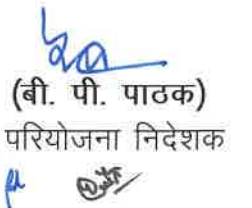 (बी. पी. पाठक)
परियोजना निदेशक